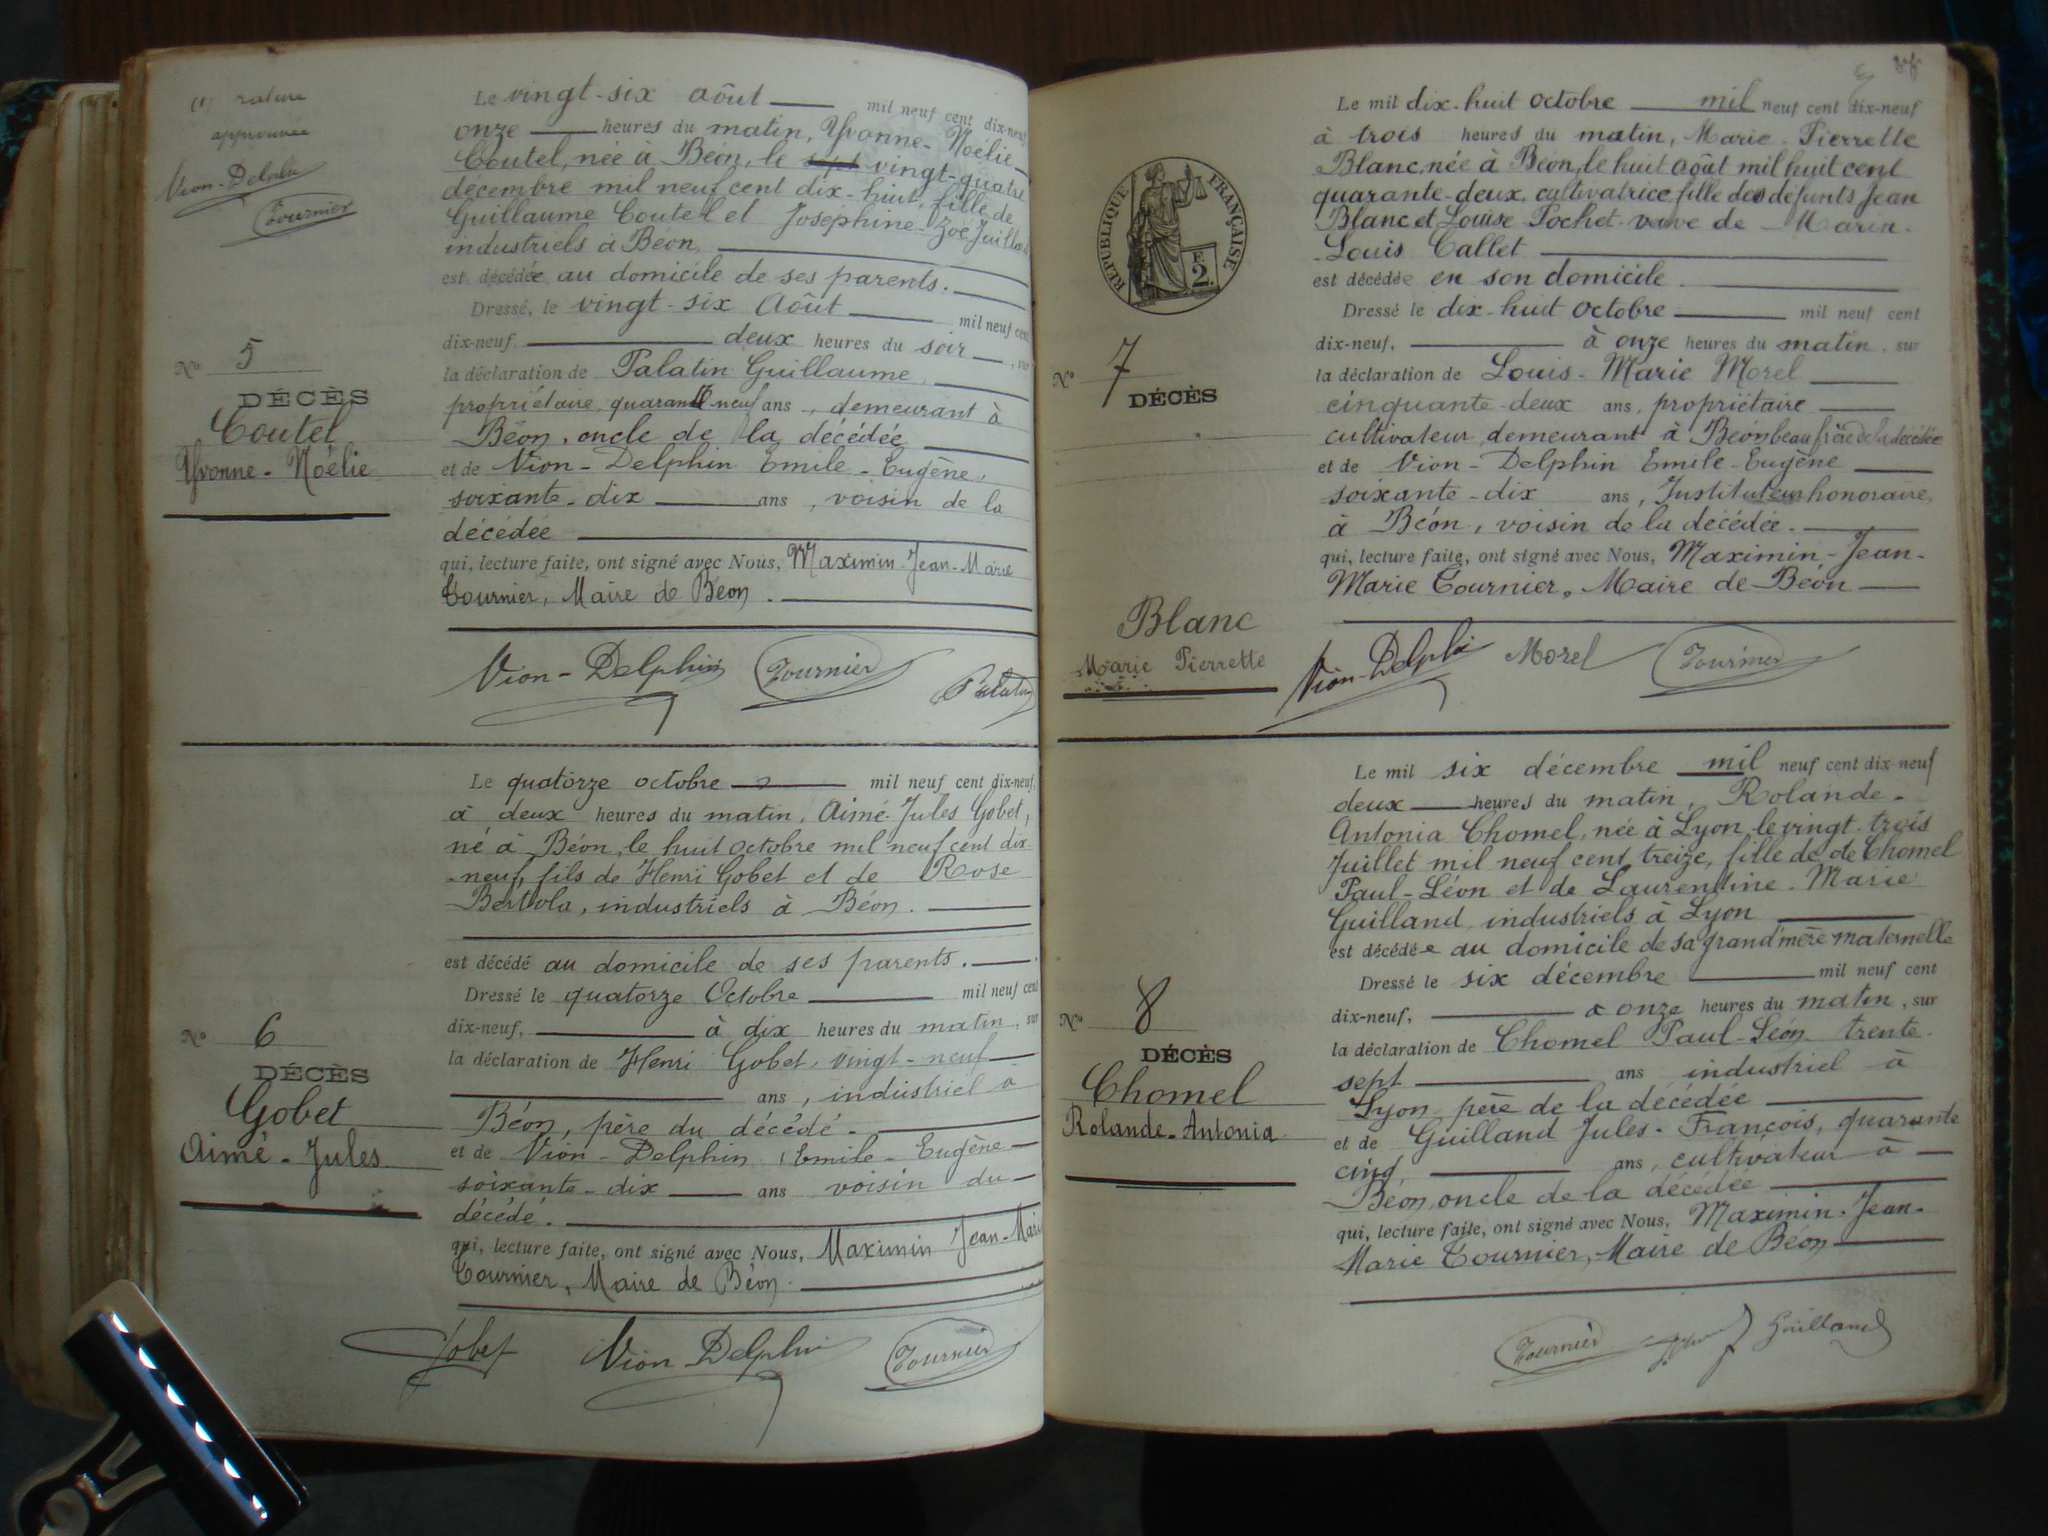 (1) rature
approuvée
Vion-Delphin
Tournier
Le vingt-six août mil neuf cent dix-neuf
onze heures du matin, Yvonne-Noélie
Coutel, née à Béon, le sept vingt-quatre
décembre mil neuf cent dix-huit, fille de
Guillaume Coutel et Joséphine-Zoé
industriels à Béon,
est décédée au domicile de ses parents.
Dressé, le vingt-six Août mil neuf cent
dix-neuf, deux heures du soir, sur
la déclaration de Palatin Guillaume,
propriétaire, quarante-neuf ans, demeurant à
Béon, oncle de la décédée
et de Vion-Delphin Emile-Eugène,
soixante-dix ans, voisin de la
décédée
qui, lecture faite, ont signé avec Nous, Maximin-Jean-Marie
Tournier, Maire de Béon.
No 5
DÉCÈS
Coutel
Yvonne-Noélie
Vion-Delphin Tournier Palatin
Le quatorze octobre mil neuf cent dix-neuf,
à deux heures du matin, Aimé-Jules Gobet,
né à Béon, le huit octobre mil neuf cent dix-
-neuf, fils de Henri Gobet et de Rose
Bertola, industriels à Béon.
est décédé au domicile de ses parents.
Dressé le quatorze Octobre mil neuf cent
dix-neuf, à dix heures du matin, sur
la déclaration de Henri Gobet, vingt-neuf
ans, industriel à
Béon, père du décédé.
et de Vion-Delphin, Emile-Eugène
soixante-dix ans voisin du
décédé.
qui, lecture faite, ont signé avec Nous, Maximin Jean-Marie
Tournier, Maire de Béon.
No 6
DÉCÈS
Gobet
Aimé-Jules
Gobet Vion Delphin Tournier
Le mil dix-huit octobre mil neuf cent dix-neuf
à trois heures du matin, Marie-Pierrette
Blanc, née à Béon, le huit août mil huit cent
quarante-deux, cultivatrice, fille des défunts Jean
Blanc et Louise Pochet veuve de Marin-
-Louis Callet
est décédée en son domicile.
Dressé le dix-huit octobre mil neuf cent
dix-neuf, à onze heures du matin, sur
la déclaration de Louis-Marie Morel
cinquante-deux ans, propriétaire
cultivateur demeurant à Béon beau frère de la décédée
et de Vion-Delphin Emile-Eugène
soixante-dix ans, Instituteur honoraire,
à Béon, voisin de la décédée.
qui, lecture faite, ont signé avec Nous, Maximin-Jean-
Marie Tournier, Maire de Béon
RÉPUBLIQUE FRANÇAISE
F
2.
No 7
DÉCÈS
Blanc
Marie Pierrette
Vion-Delphin Morel Tournier
Le mil six décembre mil neuf cent dix-neuf
deux heures du matin, Rolande-
Antonia Chomel, née à Lyon, le vingt-trois
Juillet mil neuf cent treize, fille de de Chomel
Paul-Léon et de Laurentine-Marie
Guilland, industriels à Lyon
est décédée au domicile de sa grand'mère maternelle
Dressé le six décembre mil neuf cent
dix-neuf, à onze heures du matin, sur
la déclaration de Chomel Paul-Léon trente-
sept ans industriel à
Lyon père de la décédée
et de Guilland Jules-François, quarante
cinq ans, cultivateur à
Béon, oncle de la décédée
qui, lecture faite, ont signé avec Nous, Maximin-Jean-
Marie Tournier, Maire de Béon
No 8
DÉCÈS
Chomel
Rolande-Antonia
Tournier Guilland